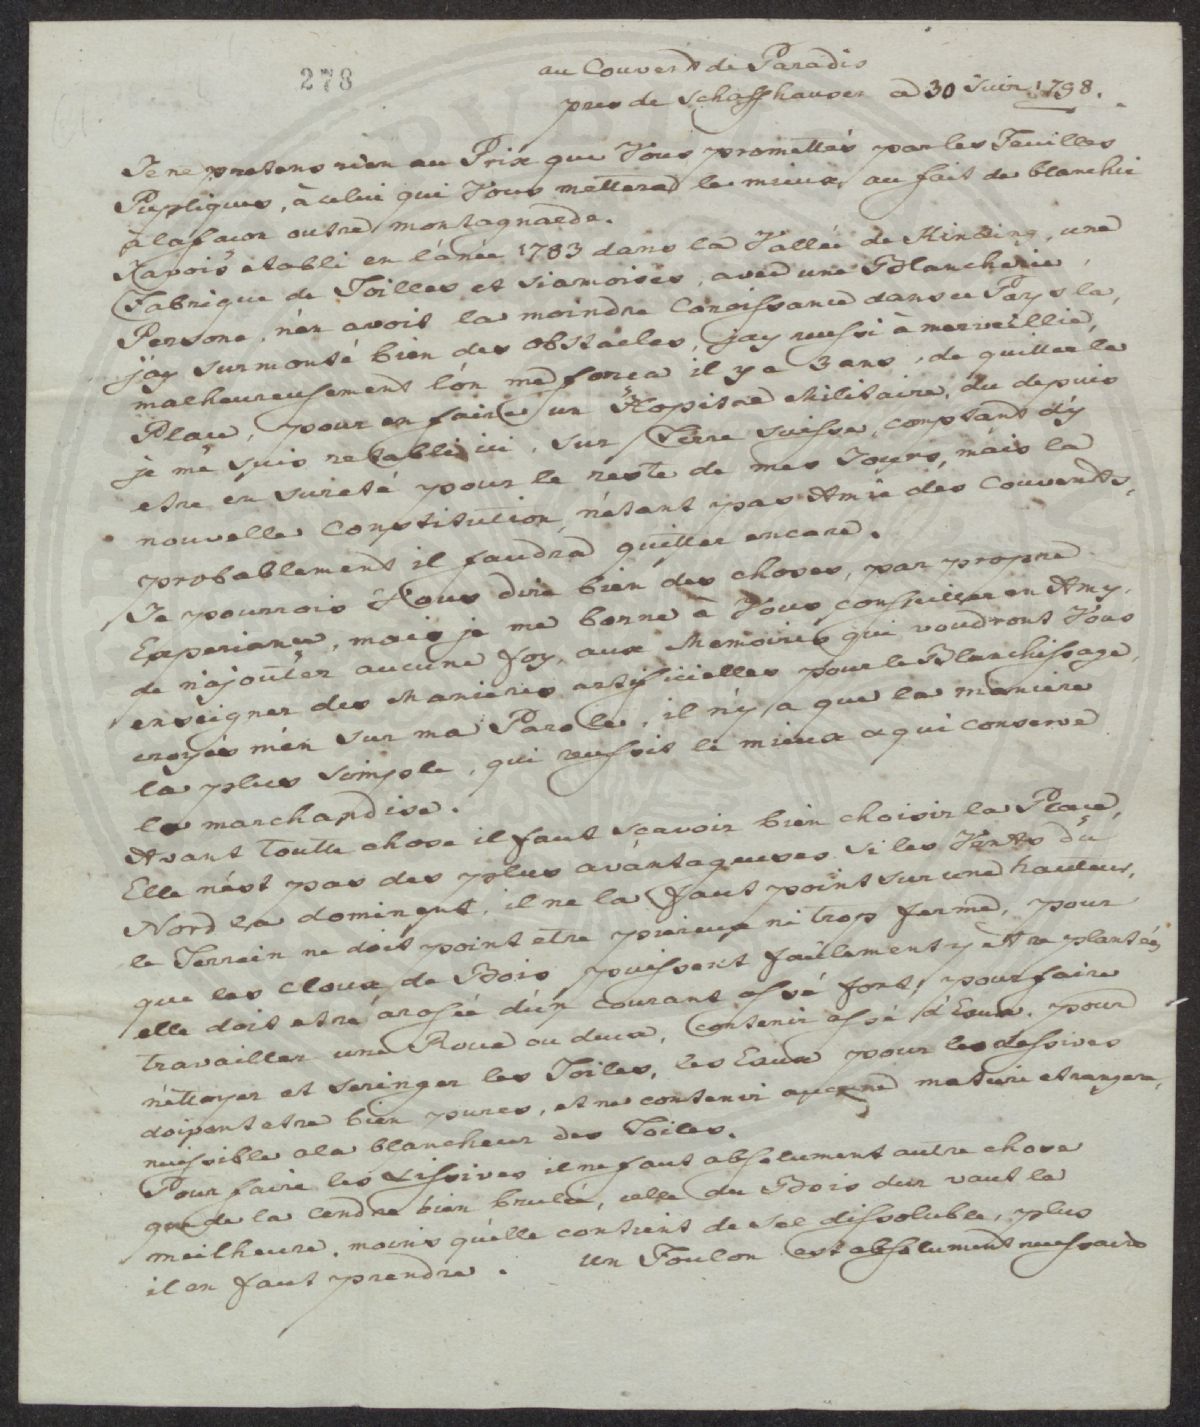 278
au Couvend de Paradis
pres de Schaffhausen a 30 Juin 1798.
Je ne pretens rien au Prix que Vous promettés par les Feuilles
Pupliques, à celui qui Vous metterad le mieux au fait de blanchir
à la facon outre montagnarde.
J'avois etabli en l'anée 1783 dans la Vallée de Kinzing, une
Fabrique de Toilles et Siamoises, aved une Blancherie,
Persone n'en avoit la moindre Conoissance dans ce Pays la,
j'ay surmonté bien des obstacles, jay reussi à merveillie,
malheureusement l'on me forca il y a 3 ans, de quitter la
Place, pour en faire un Hopital Militaire, du depuis
je me suis retabli ici, sur Terre Suisse, comptant d'y
etre en sureté pour le reste de mes Jours, mais la
nouvelle Constitution, n'etant pas Amie des Couvents,
probablement il faudra quitter encore.
Je pourrois Vous dire bien des choses, par propre
Experiance, mais je me borne à Vous consuiller en Amy,
de n'ajouter aucune foy, aux Memoires qui voudront Vous
enseigner des Manieres artificielles pour le Blanchissage,
croyés m'en sur ma Parole, il n'y a que la maniere
la plus simple, qui reussit le mieux a qui conserve
la marchandise.
Avant toutte chose il faut scavoir bien choisir la Place,
Elle n'est pas des plus avantageuses si les Vents du
Nord la dominent, il ne la faut point sur une hauteur,
le Terrein ne doit point etre piereux ni trop ferme, pour
que les Cloux de Bois puissent facilement y être plantés,
elle doit etre arosée d'un courant assé fort, pour faire
travailler une Roue ou deux, contenir assé d'Eaux, pour
nettoyer et seringer les Toiles, les Eaux pour les dessives
doivent etre bien pures, et ne contenir aucune matiere etrangere,
nuissible a la blancheur des Toiles.
Pour faire les Lissives il ne faut absolument autre chose
que de la Cendre bien brulée, celle du Bois dur vaut la
meilheure, moins qu'elle contient de sel dissoluble, plus
il en faut prendre. Un Foulon est absolument necessaire